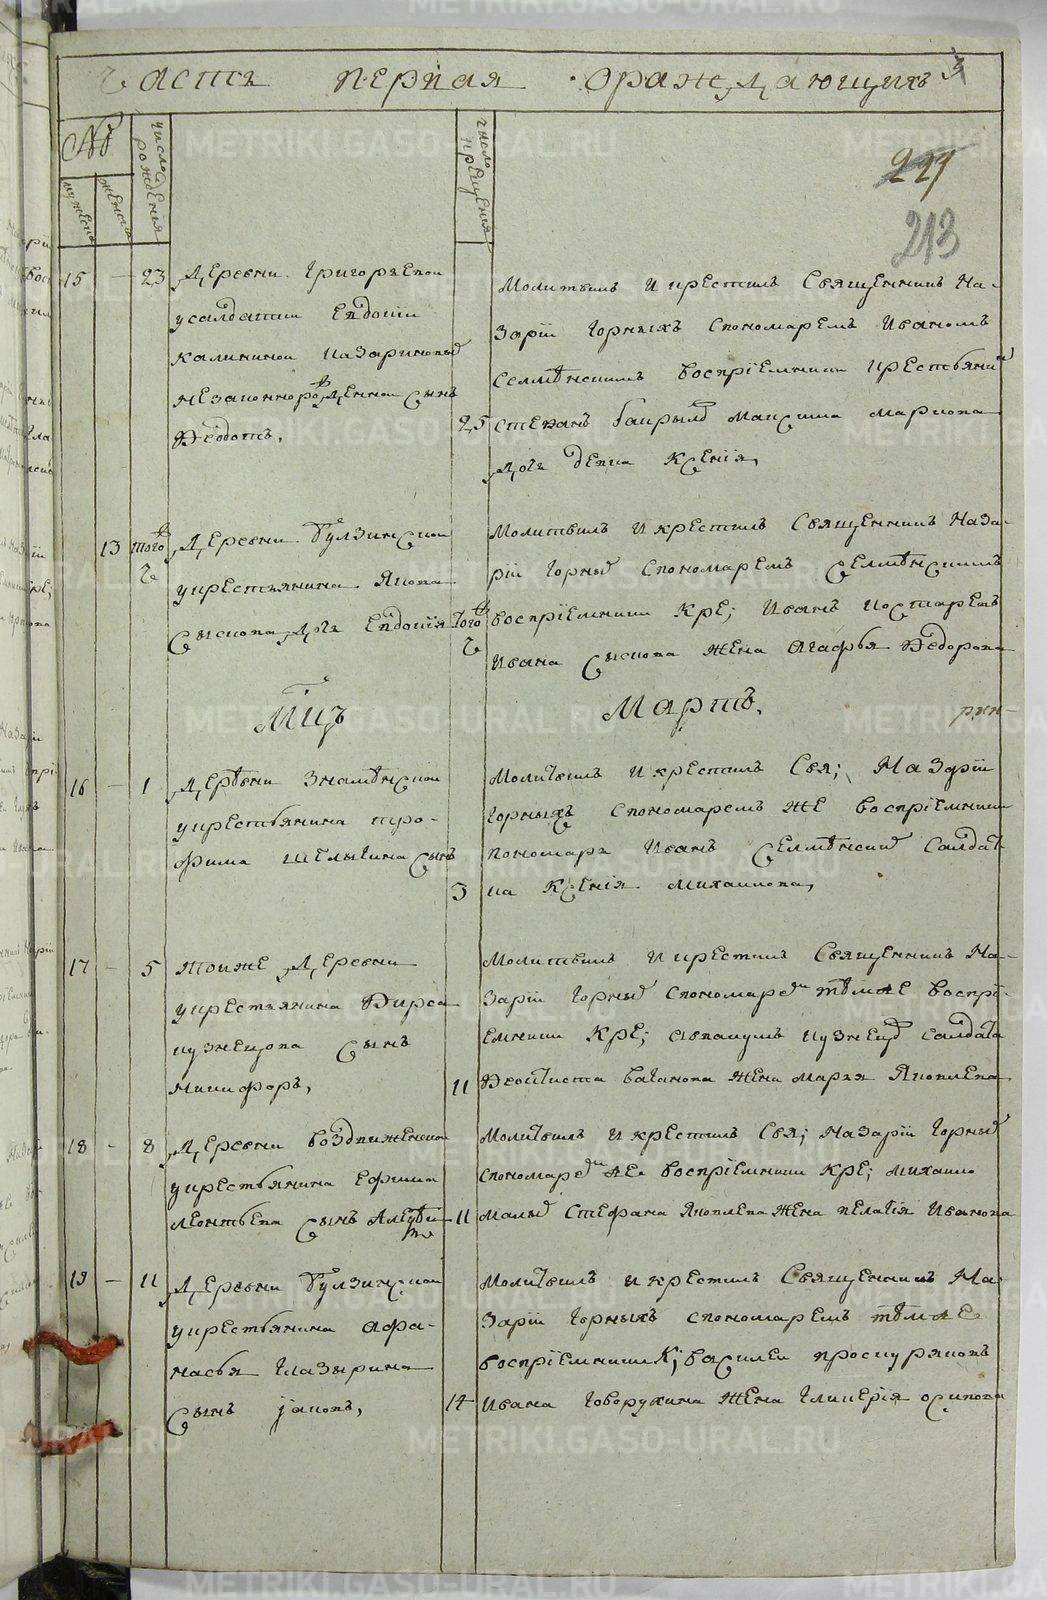 Часть первая ораждающихъ
№
мужеска
женска
число рождения
число крещения
227
213
15 – 23 Деревни Григорьевой
усалдатки Евдокіи
Калининой Назариновы
незаконнорожденной сынъ
Ѳедотъ,
25
Молитвилъ и крестилъ Священникъ На-
зарій Горныхъ Спономаремъ Иваномъ
Селмѣнскимъ Воспріемники крестьяни
Степанъ Максима Маркова
дочь девка Ксенія,
13 того ч Деревни Булзинской
укрестьянина Якова
Сыскова дочь Евдокія
того ч
Молитвилъ и крестилъ Священникъ Наза-
рій Горный Спономаремъ Селмѣнскимъ
воспріемники Кре; Иванъ Костаревъ
Ивана Сыскова жена Агафья Ѳедорова
Мцъ Мартъ,
16 – 1 Деревни Знамѣнской
укрестьянина Тро-
фима Шелыгина сынъ
3
Молитвилъ и крестилъ Свя; Назарій
Горныхъ Спономаремъ же воспріемники
пономарь Иванъ Селмѣнский Салдат
ка Ксенія Михаилова,
17 – 5 Тойже Деревни
укрестьянина Фирса
Кузнецова сынъ
Никифоръ,
11
Молитвилъ и крестилъ Священникъ На-
зарій Горный Спономаремъ тѣмже воспрі-
емники Кре; Авакумъ Кузнецъ Салдата
Ѳеоктиста Баганова жена Марья Яковлева
18 – 8 Деревни Воздвиженской
укрестьянина Ефима
Леонтьева сынъ Алеѯѣй
11
Молитвилъ и крестилъ Свя; Назарій Горный
Спономаремъ же воспріемники Кре; Михаило
Малый Стефана Яковлева жена Пелагія Иванова
19 – 11 Деревни Булзинской
укрестьянина Афа-
насья Глазырина
Сынъ Іаковъ,
14
Молитвилъ и крестилъ Священникъ На-
зарій Горныхъ Спономаремъ тѣмже
воспріемники К; Василеи Проскуряковъ
Ивана Говорухина жена Гликерія Осипова
METRIKI.GASO-URAL.RU